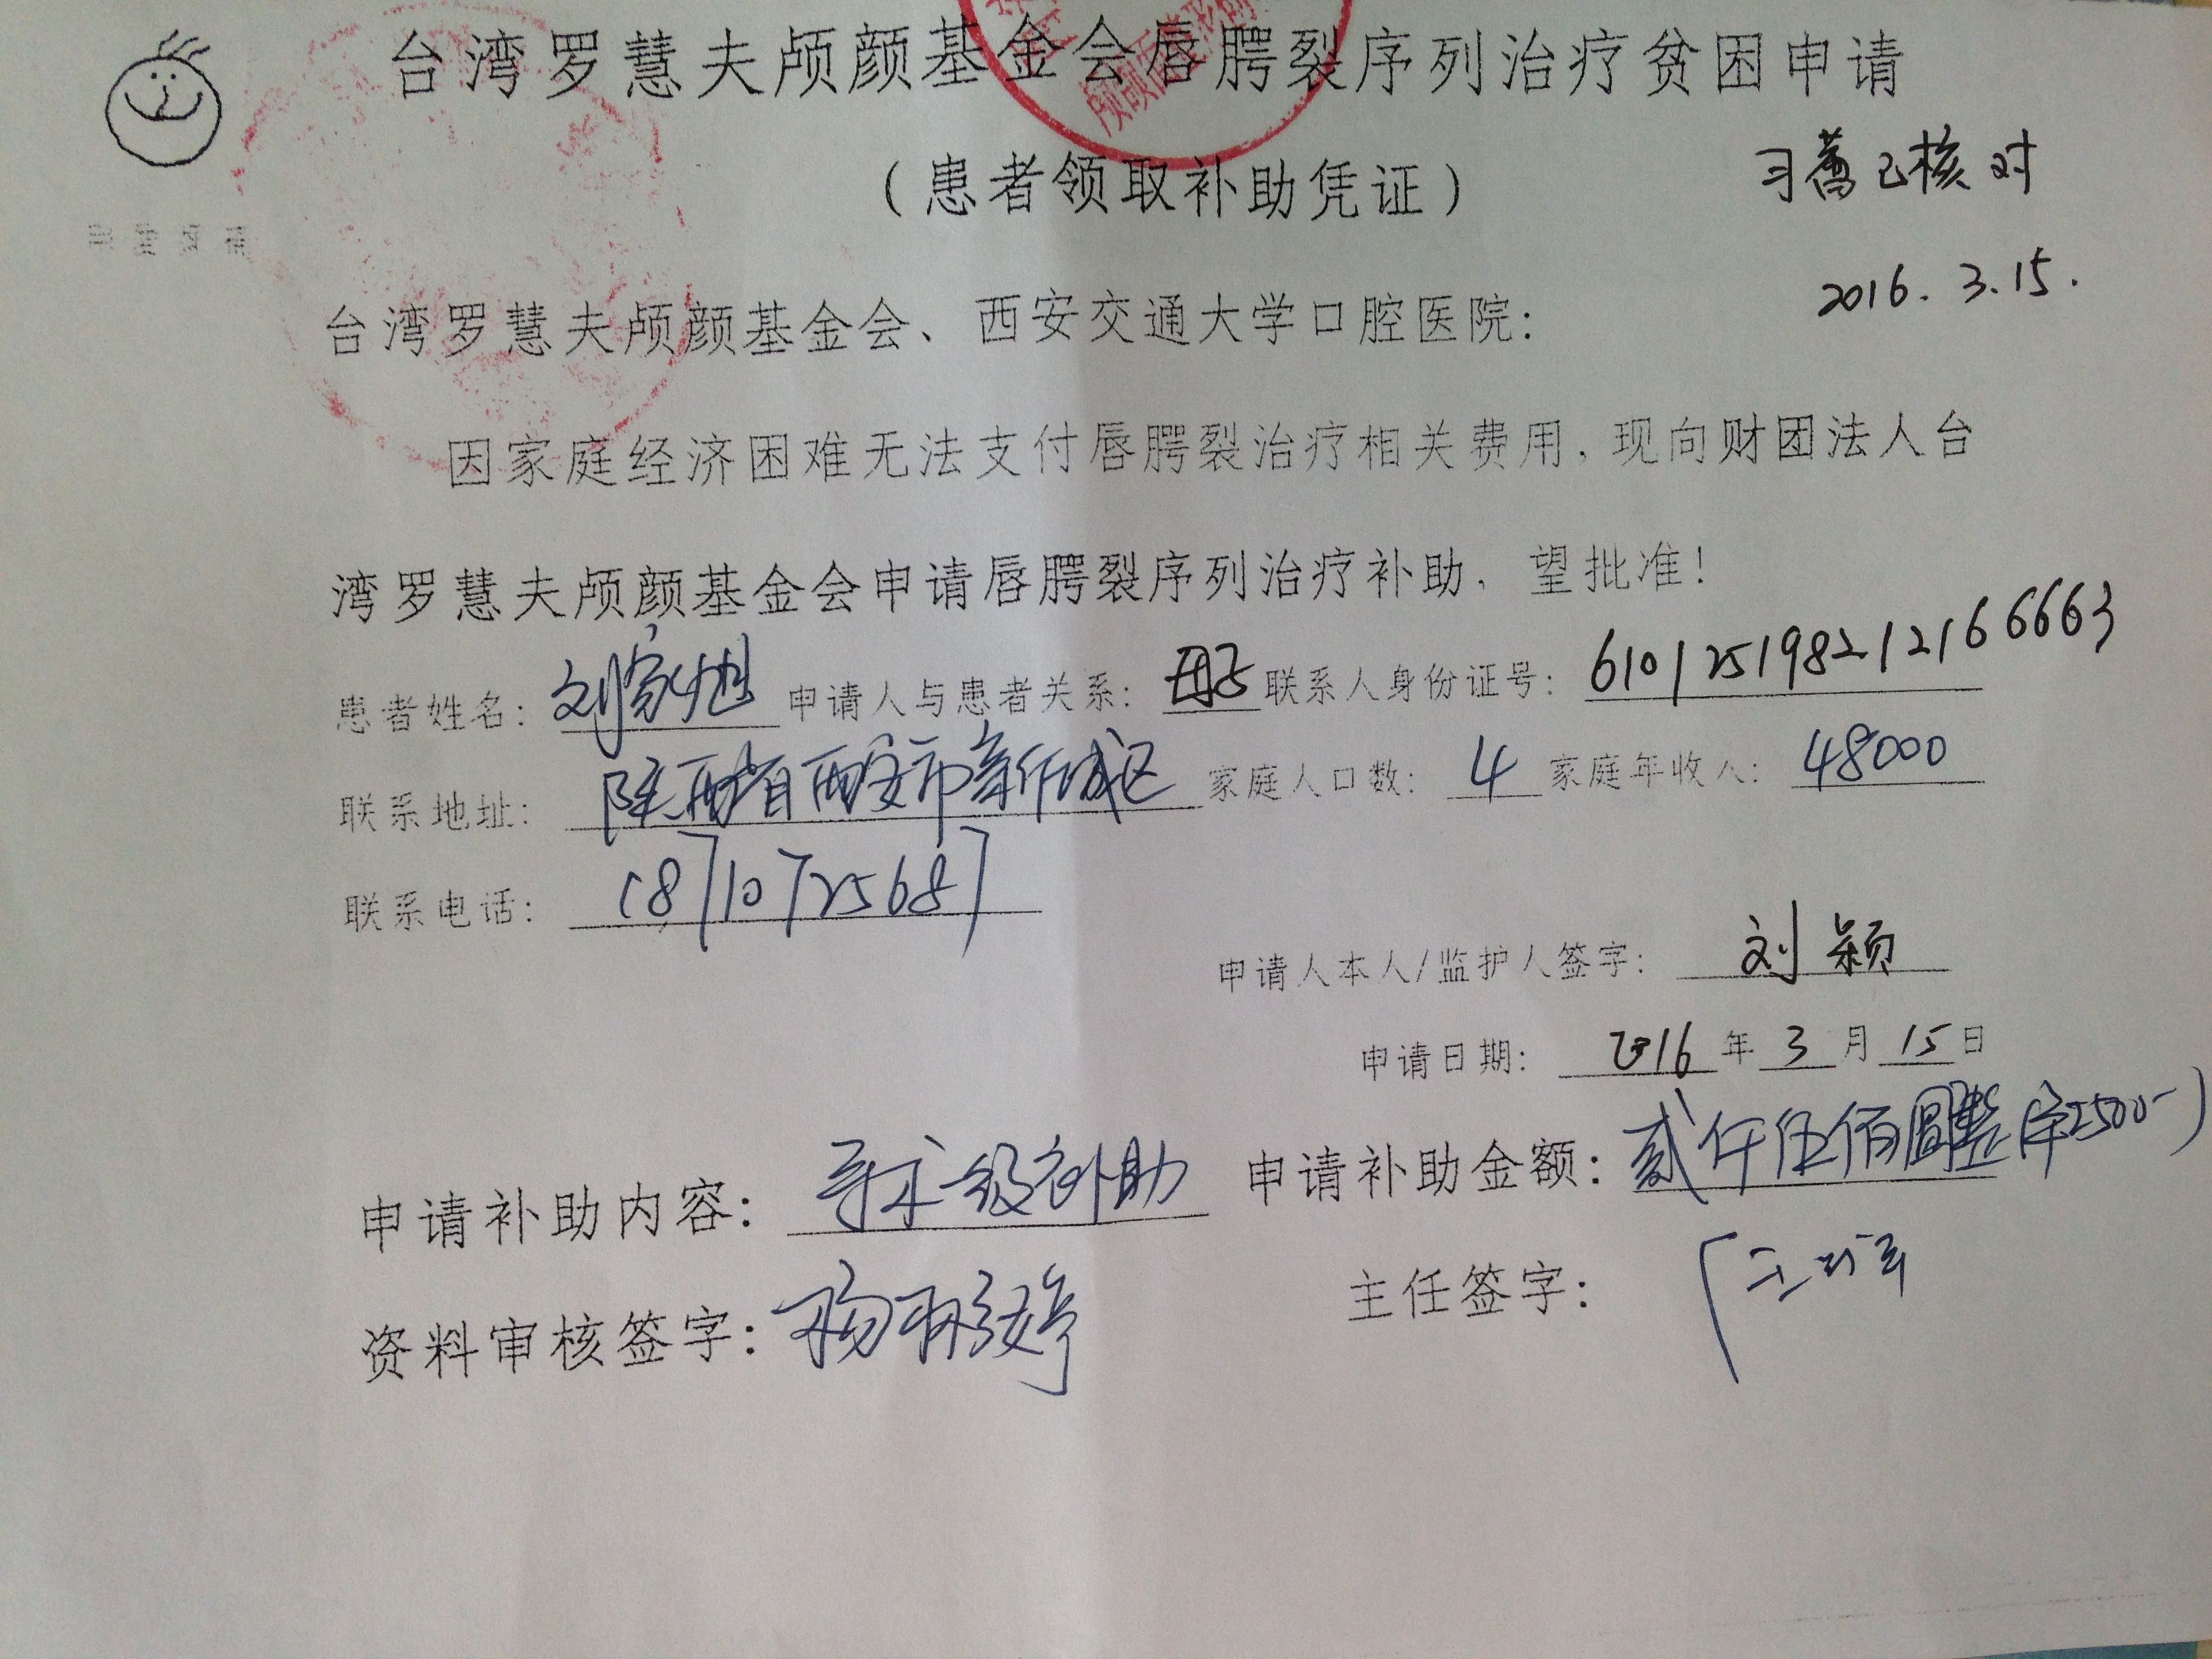 台湾罗慧夫颅颜基金会唇腭裂序列治疗贫困申请
（患者领取补助凭证）
习 已核对
2016.3.15.
台湾罗慧夫颅颜基金会、西安交通大学口腔医院：
因家庭经济困难无法支付唇腭裂治疗相关费用，现向财团法人台
湾罗慧夫颅颜基金会申请唇腭裂序列治疗补助，望批准！
患者姓名：刘家旭 申请人与患者关系：母子 联系人身份证号：610125198212166663
联系地址：陕西省西安市新城区 家庭人口数：4 家庭年收入：48000
联系电话：18710725687
申请人本人/监护人签字：刘颖
申请日期：2016年3月15日
申请补助内容：手术一级补助 申请补助金额：贰仟伍佰圆整(¥2500-)
资料审核签字：杨 婷 主任签字：